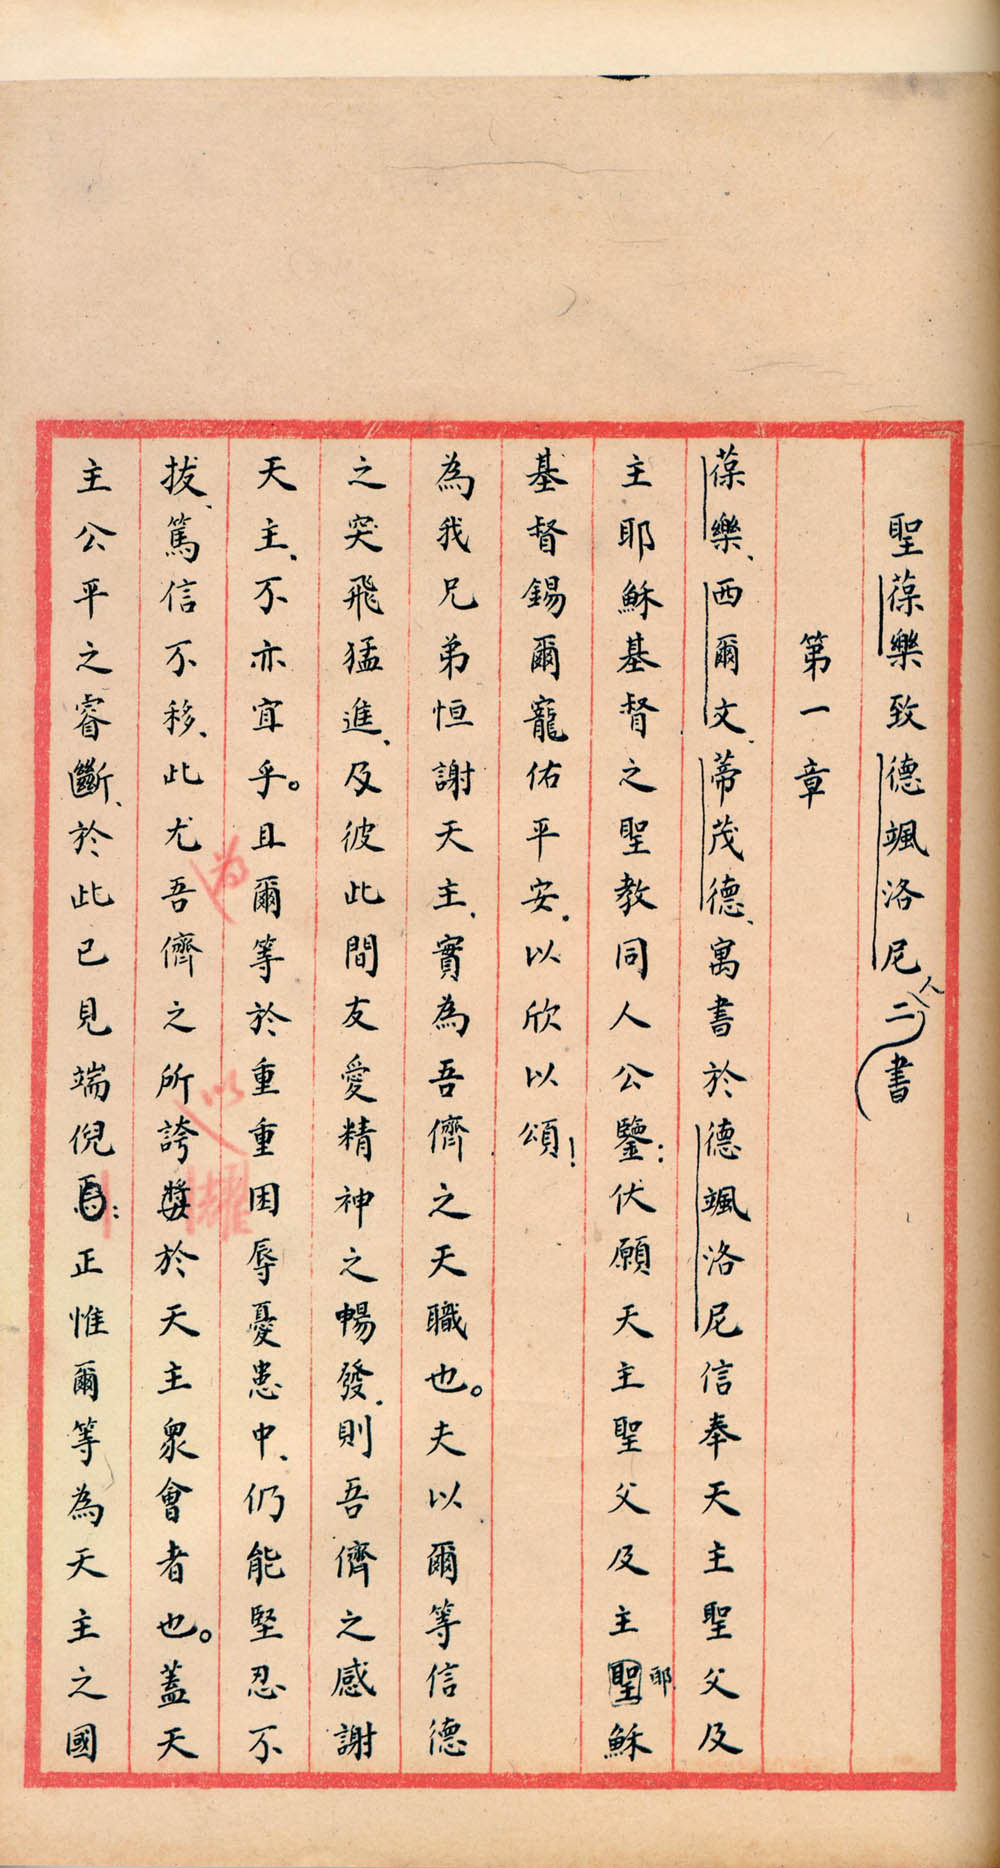 聖葆樂致德颯洛尼人二書
第一章
葆樂、西爾文、蒂茂德、寓書於德颯洛尼信奉天主聖父及
主耶穌基督之聖教同人公鑒：伏願天主聖父及主耶穌
基督錫爾寵佑平安、以欣以頌！
為我兄弟恒謝天主、實為吾儕之天職也。夫以爾等信德
之突飛猛進、及彼此間友愛精神之暢發、則吾儕之感謝
天主、不亦宜乎。且爾等於重重困辱憂患中、仍能堅忍不
拔、篤信不移、此尤吾儕之所誇獎於天主衆會者也。蓋天
為
以
耀
主公平之睿斷、於此已見端倪焉：正惟爾等為天主之國